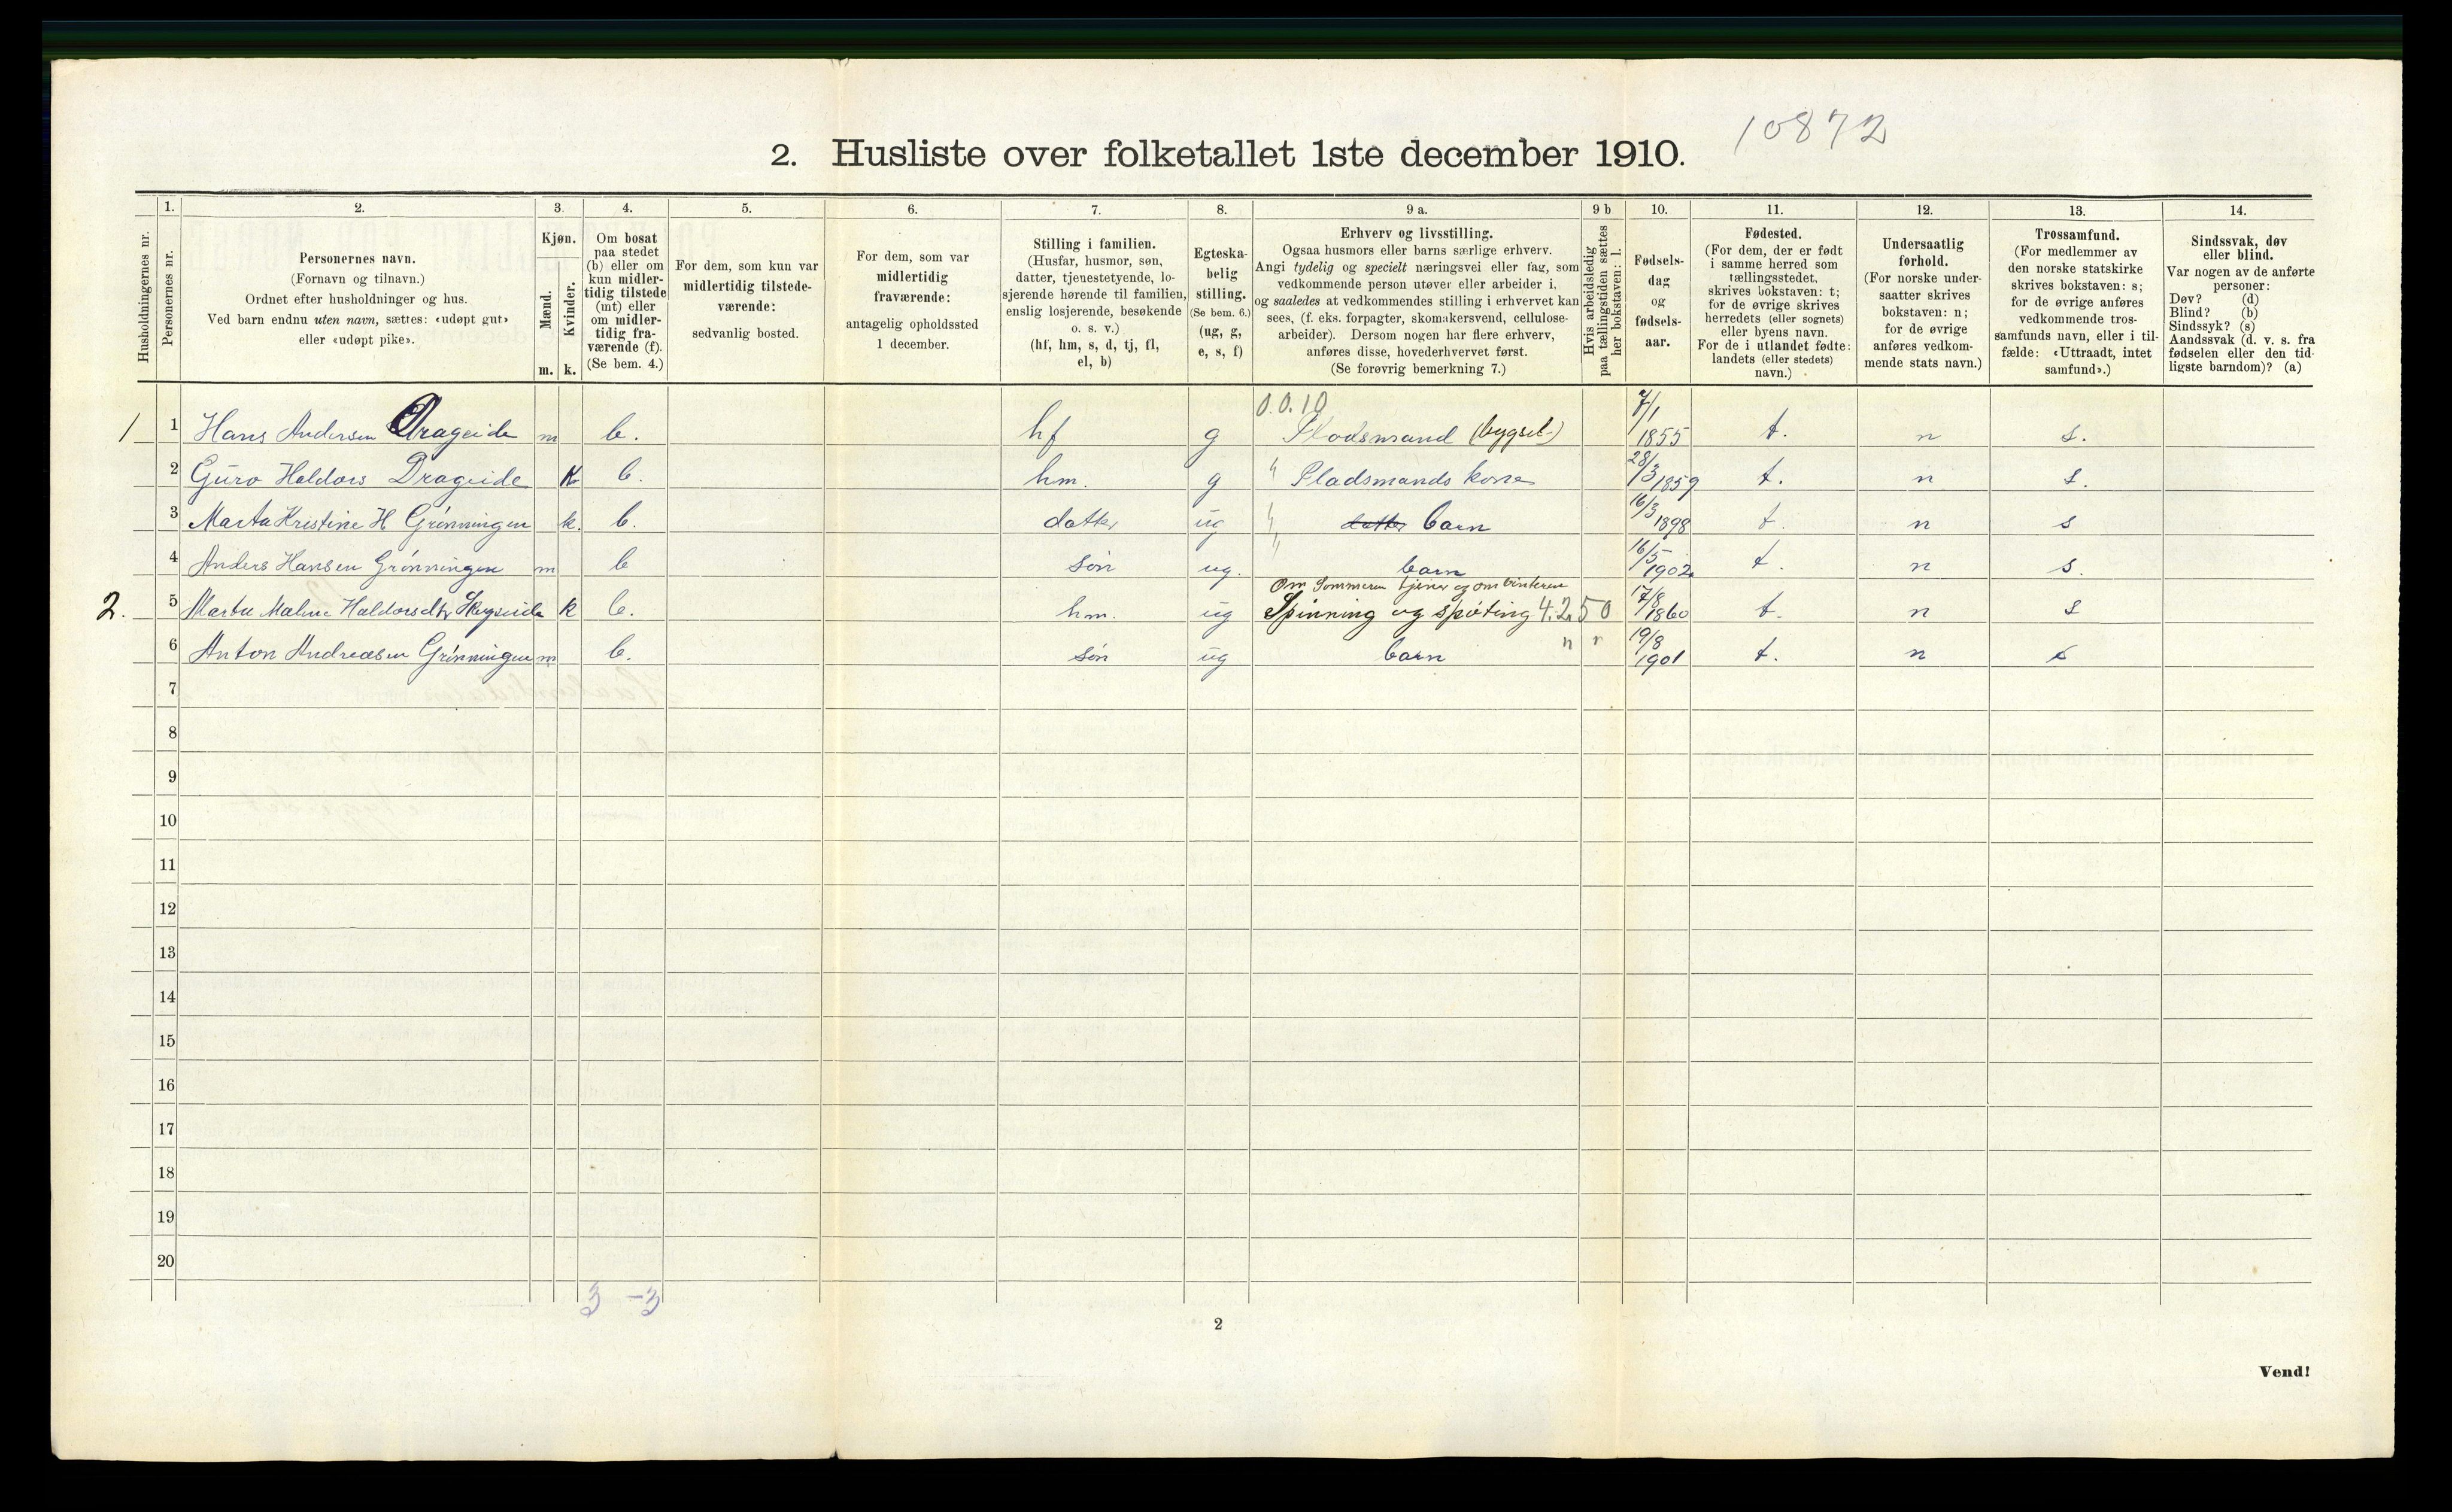 10872
2. Husliste over folketallet 1ste december 1910.
Husholdningernes nr.
1.
Personernes nr.
2.
Personernes navn.
(Fornavn og tilnavn.)
Ordnet efter husholdninger og hus.
Ved barn endnu uten navn, sættes: «udøpt gut»
eller «udøpt pike».
3.
Kjøn.
Mænd.
Kvinder.
m. k.
4.
Om bosat
paa stedet
(b) eller om
kun midler-
tidig tilstede
(mt) eller
om midler-
tidig fra-
værende (f).
(Se bem. 4.)
5.
For dem, som kun var
midlertidig tilstede-
værende:
sedvanlig bosted.
6.
For dem, som var
midlertidig
fraværende:
antagelig opholdssted
1 december.
7.
Stilling i familien.
(Husfar, husmor, søn,
datter, tjenestetyende, lo-
sjerende hørende til familien,
enslig losjerende, besøkende
o. s. v.)
(hf, hm, s, d, tj, fl,
el, b)
8.
Egteska-
belig
stilling.
(Se bem. 6.)
(ug, g,
e, s, f)
9 a.
Erhverv og livsstilling.
Ogsaa husmors eller barns særlige erhverv.
Angi tydelig og specielt næringsvei eller fag, som
vedkommende person utøver eller arbeider i,
og saaledes at vedkommendes stilling i erhvervet kan
sees, (f. eks. forpagter, skomakersvend, cellulose-
arbeider). Dersom nogen har flere erhverv,
anføres disse, hovederhvervet først.
(Se forøvrig bemerkning 7.)
9 b
Hvis arbeidsledig
paa tællingstiden sættes
her bokstaven: l.
10.
Fødsels-
dag
og
fødsels-
aar.
11.
Fødested.
(For dem, der er født
i samme herred som
tællingsstedet,
skrives bokstaven: t;
for de øvrige skrives
herredets (eller sognets)
eller byens navn.
For de i utlandet fødte:
landets (eller stedets)
navn.)
12.
Undersaatlig
forhold.
(For norske under-
saatter skrives
bokstaven: n;
for de øvrige
anføres vedkom-
mende stats navn.)
13.
Trossamfund.
(For medlemmer av
den norske statskirke
skrives bokstaven: s;
for de øvrige anføres
vedkommende tros-
samfunds navn, eller i til-
fælde: «Uttraadt, intet
samfund».)
14.
Sindssvak, døv
eller blind.
Var nogen av de anførte
personer:
Døv? (d)
Blind? (b)
Sindssyk? (s)
Aandssvak (d. v. s. fra
fødselen eller den tid-
ligste barndom)? (a)
0.0.10
1 1 Hans Andersen Drageide m b. hf g Pladsmand (bygsel) 7/1 1855 t. n s.
2 Guro Haldors Drageide k b. hm. g " Pladsmands kone 28/3 1859 t. n s.
3 Marta Kristine H Grønningen k. b. datter ug " datter barn 16/3 1898 t. n s
4 Anders Hansen Grønningen m b søn ug. " barn 16/5 1902 t. n s.
Om Sommeren tjener og om Vinteren
2. 5 Marta Malene Haldorsdtr k b. hm. ug Spinning og spøting 4.250 17/8 1860 t. n s
n n
6 Anton Andreasen Grønningen m b. søn ug barn 19/8 1901 t. n s
7
8
9
10
11
12
13
14
15
16
17
18
19
20
3 - 3
2
Vend!